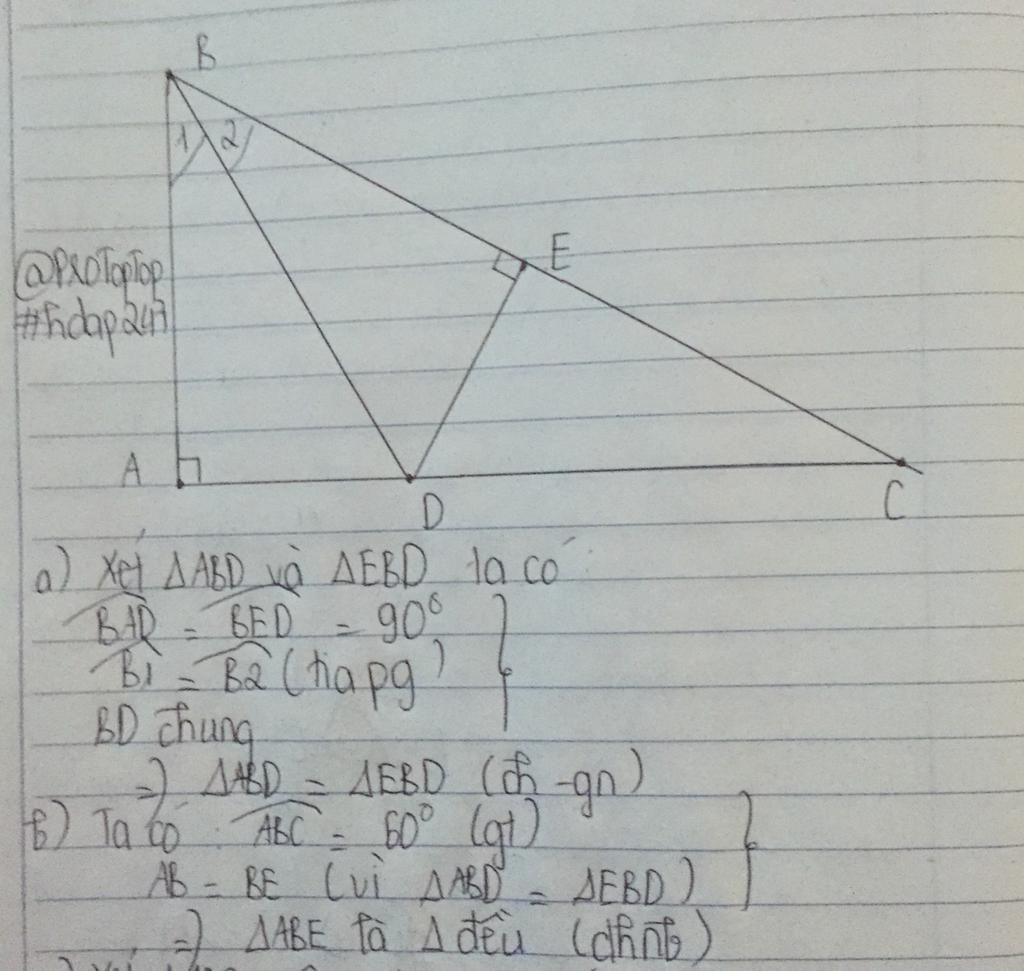 B
1 2
E
@PROTopTop
#hdap247
A
D
C
a) Xét ΔABD và ΔEBD ta có:
BAD = BED = 90°
B1 = B2 (tia pg)
BD chung
=) ΔABD = ΔEBD (ch -gn)
b) Ta có: ABC = 60° (gt)
AB = BE (vì ΔABD = ΔEBD)
=) ΔABE là Δ đều (dhnb)